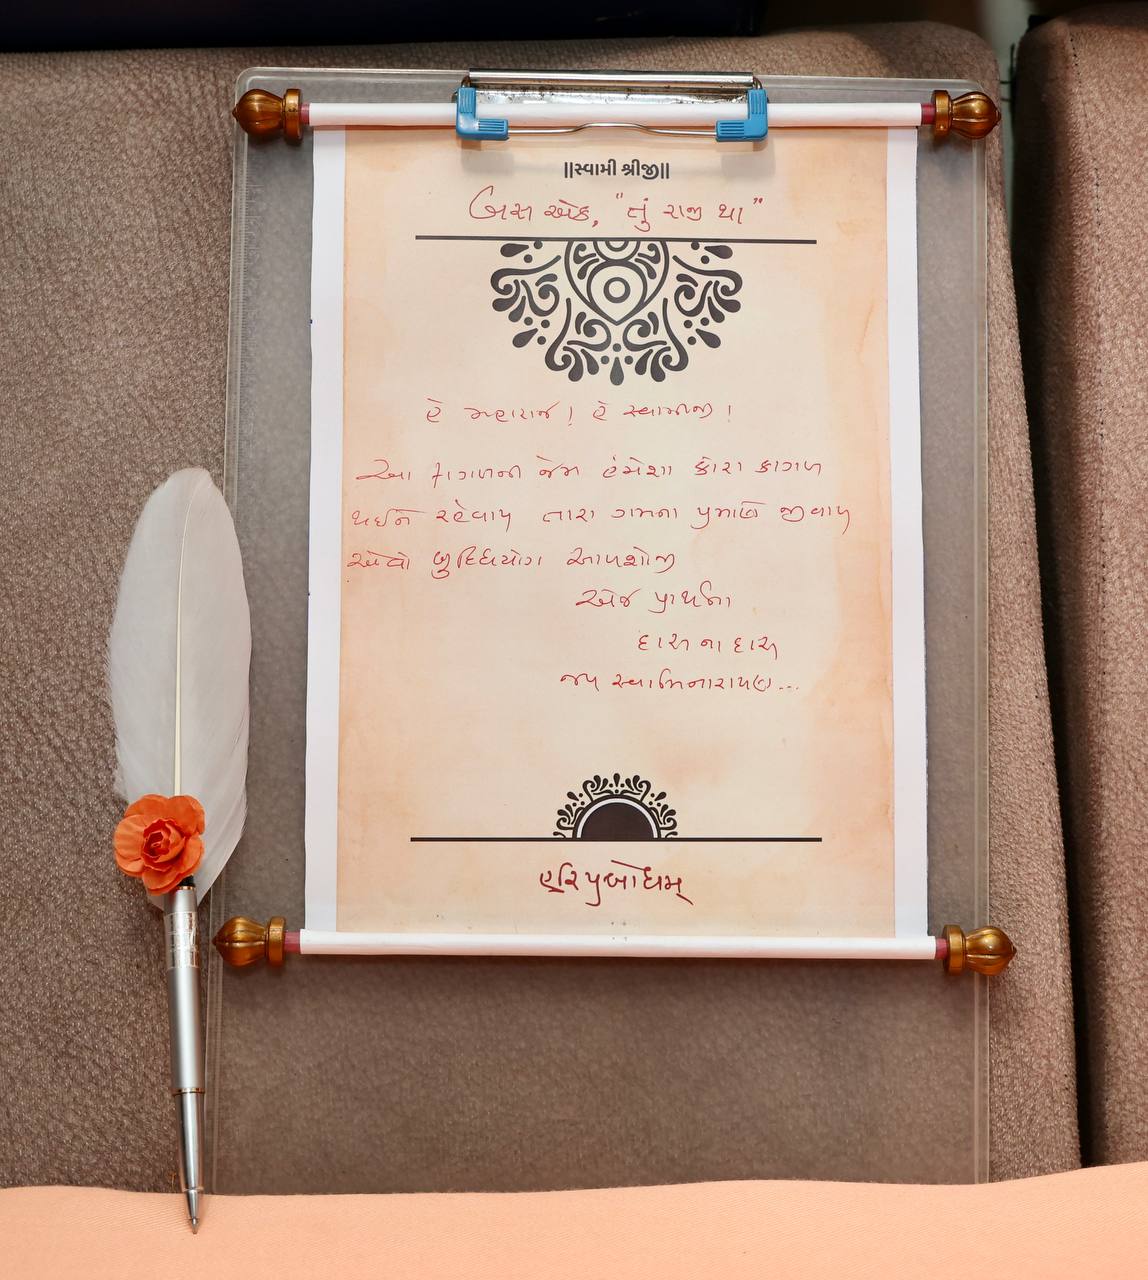 ||સ્વામી શ્રીજી||
બસ એક, "તું રાજી થા"
હે મહારાજ! હે સ્વામીજી!
આ કાગળની જેમ હંમેશા કોરા કાગળ
થઈને રહેવાય તારા ગમતા પ્રમાણે જીવાય
એવો બુદ્ધિયોગ આપશોજી
એજ પ્રાર્થના
દાસ ના દાસ
જય સ્વામિનારાયણ...
હરિપ્રબોધમ્